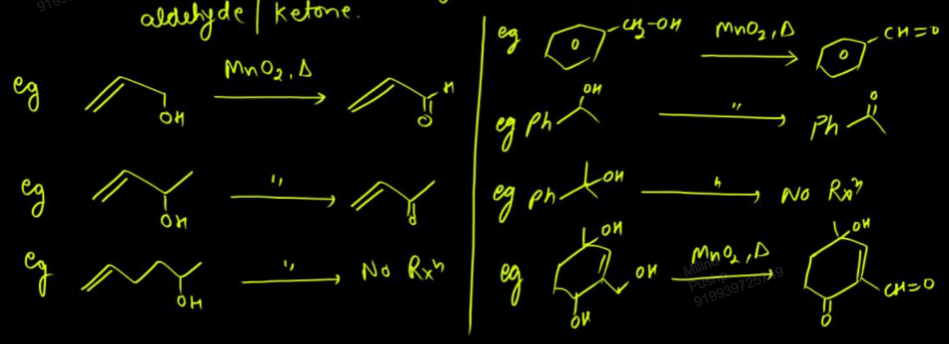 aldehyde / ketone.
eg
MnO2, Δ
OH
H
O
eg
"
OH
O
eg
"
No Rxn
OH
eg
CH2-OH
MnO2, Δ
CH=O
eg Ph
OH
"
Ph
O
eg Ph
OH
"
No Rxn
eg
OH
OH
OH
MnO2, Δ
OH
CH=O
O